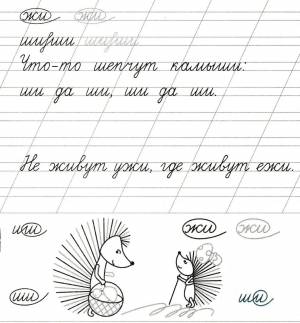 жи жи
шиши шиши
Что-то шепчут камыши:
ши да ши, ши да ши.
Не живут ужи, где живут ежи.
ши жи жи
ши ши